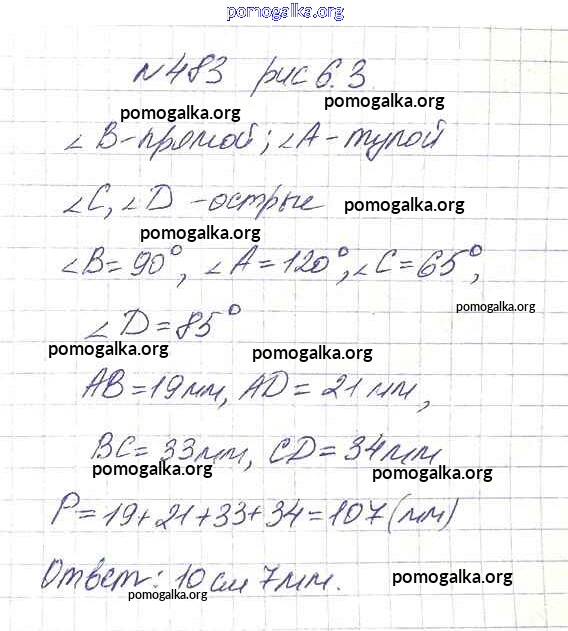 pomogalka.org
№483 рис 6.3
pomogalka.org
pomogalka.org
∠B-прямой; ∠A-тупой
∠C, ∠D -острые
pomogalka.org
pomogalka.org
∠B=90°, ∠A=120°, ∠C=65°,
pomogalka.org
∠D=85°
pomogalka.org
pomogalka.org
AB=19мм, AD=21мм,
BC=33мм, CD=34мм
pomogalka.org
pomogalka.org
P=19+21+33+34=107(мм)
Ответ: 10см 7мм.
pomogalka.org
pomogalka.org